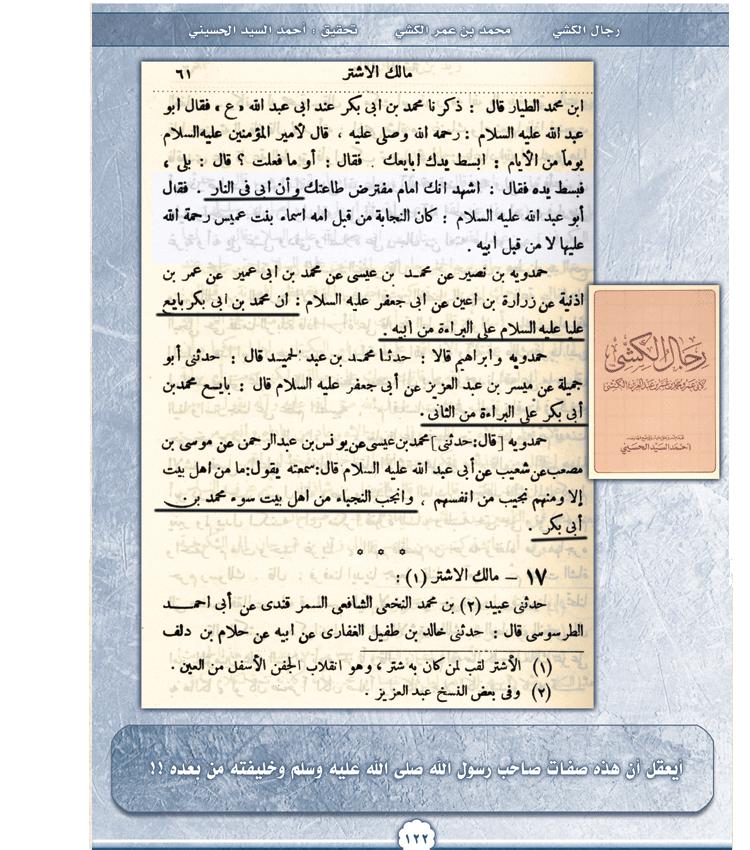 رجال الكشي محمد بن عمر الكشي تحقيق : أحمد السيد الحسيني
مالك الاشتر ٦١
ابن محمد الطيار قال : ذكرنا محمد بن ابى بكر عند ابى عبد الله «ع» فقال ابو
عبد الله عليه السلام : رحمه الله وصلى عليه ، قال لأمير المؤمنين عليه السلام
يوماً من الأيام : ابسط يدك ابايعك . فقال : أو ما فعلت ؟ قال : بلى ،
فبسط يده فقال : اشهد انك امام مفترض طاعتك وأن ابى فى النار . فقال
أبو عبد الله عليه السلام : كان النجابة من قبل امه اسماء بنت عميس رحمة الله
عليها لا من قبل ابيه .
حمدويه بن نصير عن محمد بن عيسى عن محمد بن ابى عمير عن عمر بن
اذنية عن زرارة بن اعين عن ابى جعفر عليه السلام : ان محمد بن ابى بكر بايع
عليا عليه السلام على البراءة من أبيه .
حمدويه وابراهيم قالا : حدثنا محمد بن عبد الحميد قال : حدثنى أبو
جميلة عن ميسر بن عبد العزيز عن أبى جعفر عليه السلام قال : بايع محمد بن
أبى بكر على البراءة من الثانى .
حمدويه [قال: حدثنى] محمد بن عيسى عن يونس بن عبد الرحمن عن موسى بن
مصعب عن شعيب عن أبى عبد الله عليه السلام قال: سمعته يقول: ما من اهل بيت
إلا ومنهم نجيب من انفسهم ، وانجب النجباء من اهل بيت سوء محمد بن
أبى بكر .
* * *
١٧ – مالك الاشتر (١) :
حدثنى عبيد (٢) بن محمد النخعى الشافعى السمرقندى عن أبى احمد
الطرسوسى قال : حدثنى خالد بن طفيل الغفارى عن ابيه عن حلام بن دلف
(١) الأشتر لقب لمن كان به شتر ، وهو انقلاب الجفن الأسفل من العين .
(٢) وفى بعض النسخ عبد العزيز .
رجال الكشي
أحمد السيد الحسيني
أيعقل أن هذه صفات صاحب رسول الله صلى الله عليه وسلم وخليفته من بعده !!
١٢٢